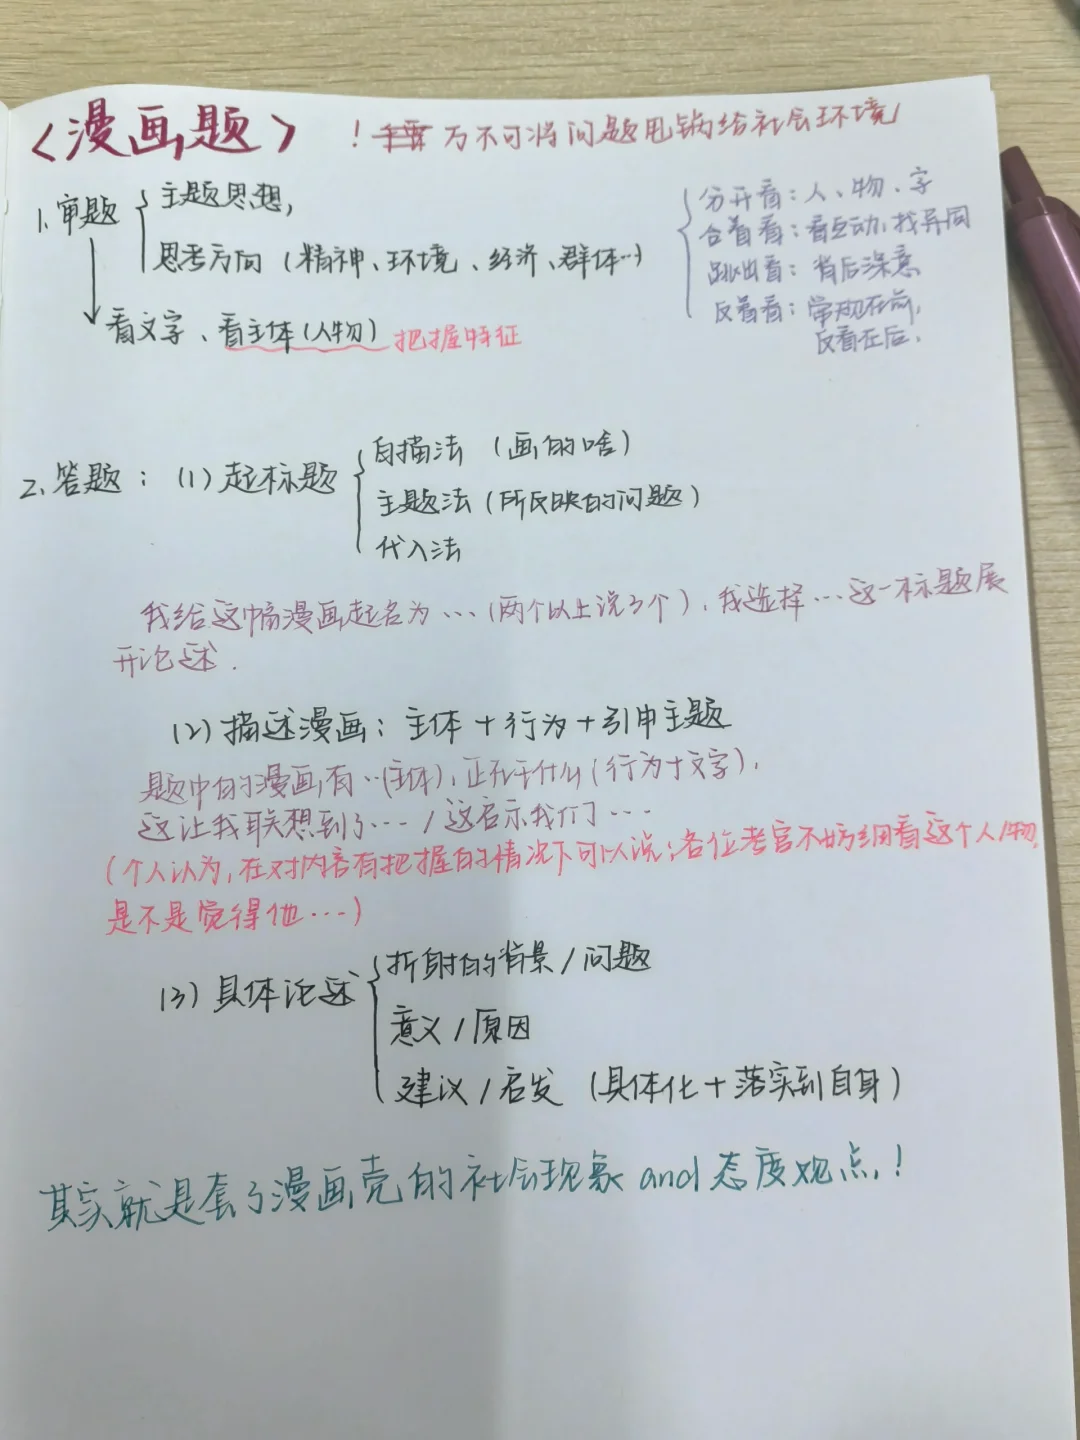 <漫画题>
！千万不可将问题甩锅给社会环境
1.审题
主题思想,
思考方向（精神、环境、经济、群体…）
看文字、看主体(人物) 把握特征
分开看：人、物、字
合着看：看互动,找异同
跳出看：背后深意
反着看：常规在前,
反看在后.
2.答题：(1)起标题
自描法（画的啥）
主题法（所反映的问题）
代入法
我给这幅漫画起名为…（两个以上说3个）,我选择…这一标题展
开论述.
(2)描述漫画：主体＋行为＋引申主题
题中的漫画有…(主体),正在干什么(行为+文字),
这让我联想到了…/这启示我们…
(个人认为,在对内容有把握的情况下可以说:各位考官不妨细看这个人物,
是不是觉得他…)
(3)具体论述
折射的背景/问题
意义/原因
建议/启发（具体化＋落实到自身）
其实就是套了漫画壳的社会现象and态度观点！